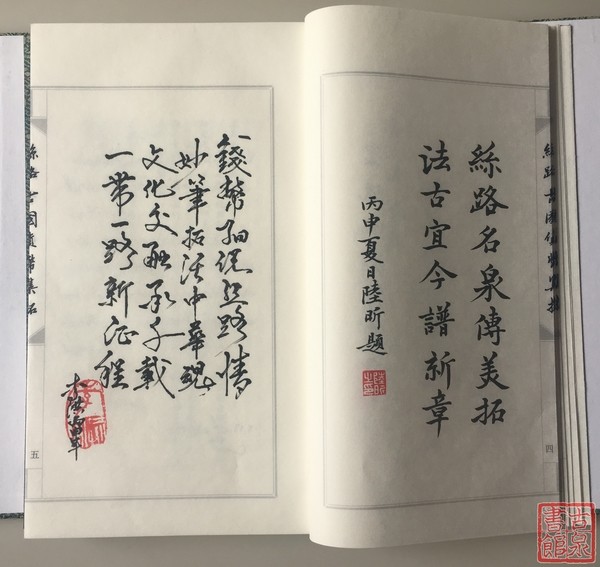 絲路名泉傳美拓
法古宜今譜新章
丙申夏日陸昕題
四
錢幣細說絲路情
妙筆拓活中華魂
文化交融承千載
一帶一路新征程
五
絲路古國錢幣集拓
古泉
書館